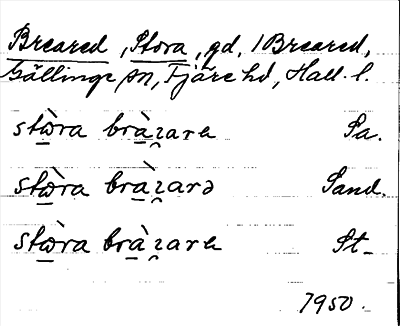 Breared, Stora, gd, 1 Breared,
Gällinge sn, Fjäre hd, Hall. l.
stæ̀ra bràʒara Sa.
stæ̀ra bràʒarə Sand.
stæ̀ra bràʒara St
1950.